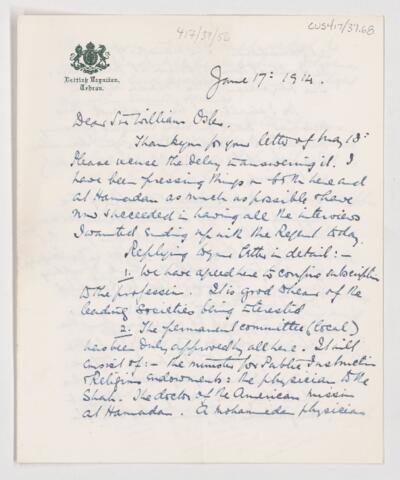 417/37/58
CUS417/37.68
British Legation,
Tehran.
June 17: 1914.
Dear Sir William Osler,
Thank you for your letter of May 18:
Please excuse the delay in answering it. I
have been pressing things on both here and
at Hamadan as much as possible & have
now succeeded in having all the interviews
I wanted ending up with the Regent today.
Replying to your letter in detail:-
1. We have agreed here to confine subscription
to the profession. It is good to hear of the
leading Societies being interested
2. The permanent committee (local)
has been duly approved by all here. It will
consist of:- The minister for Public Instruction
& Religious endowments: the physician to the
Shah. The doctor of the American mission
at Hamadan. A mohamedan physician